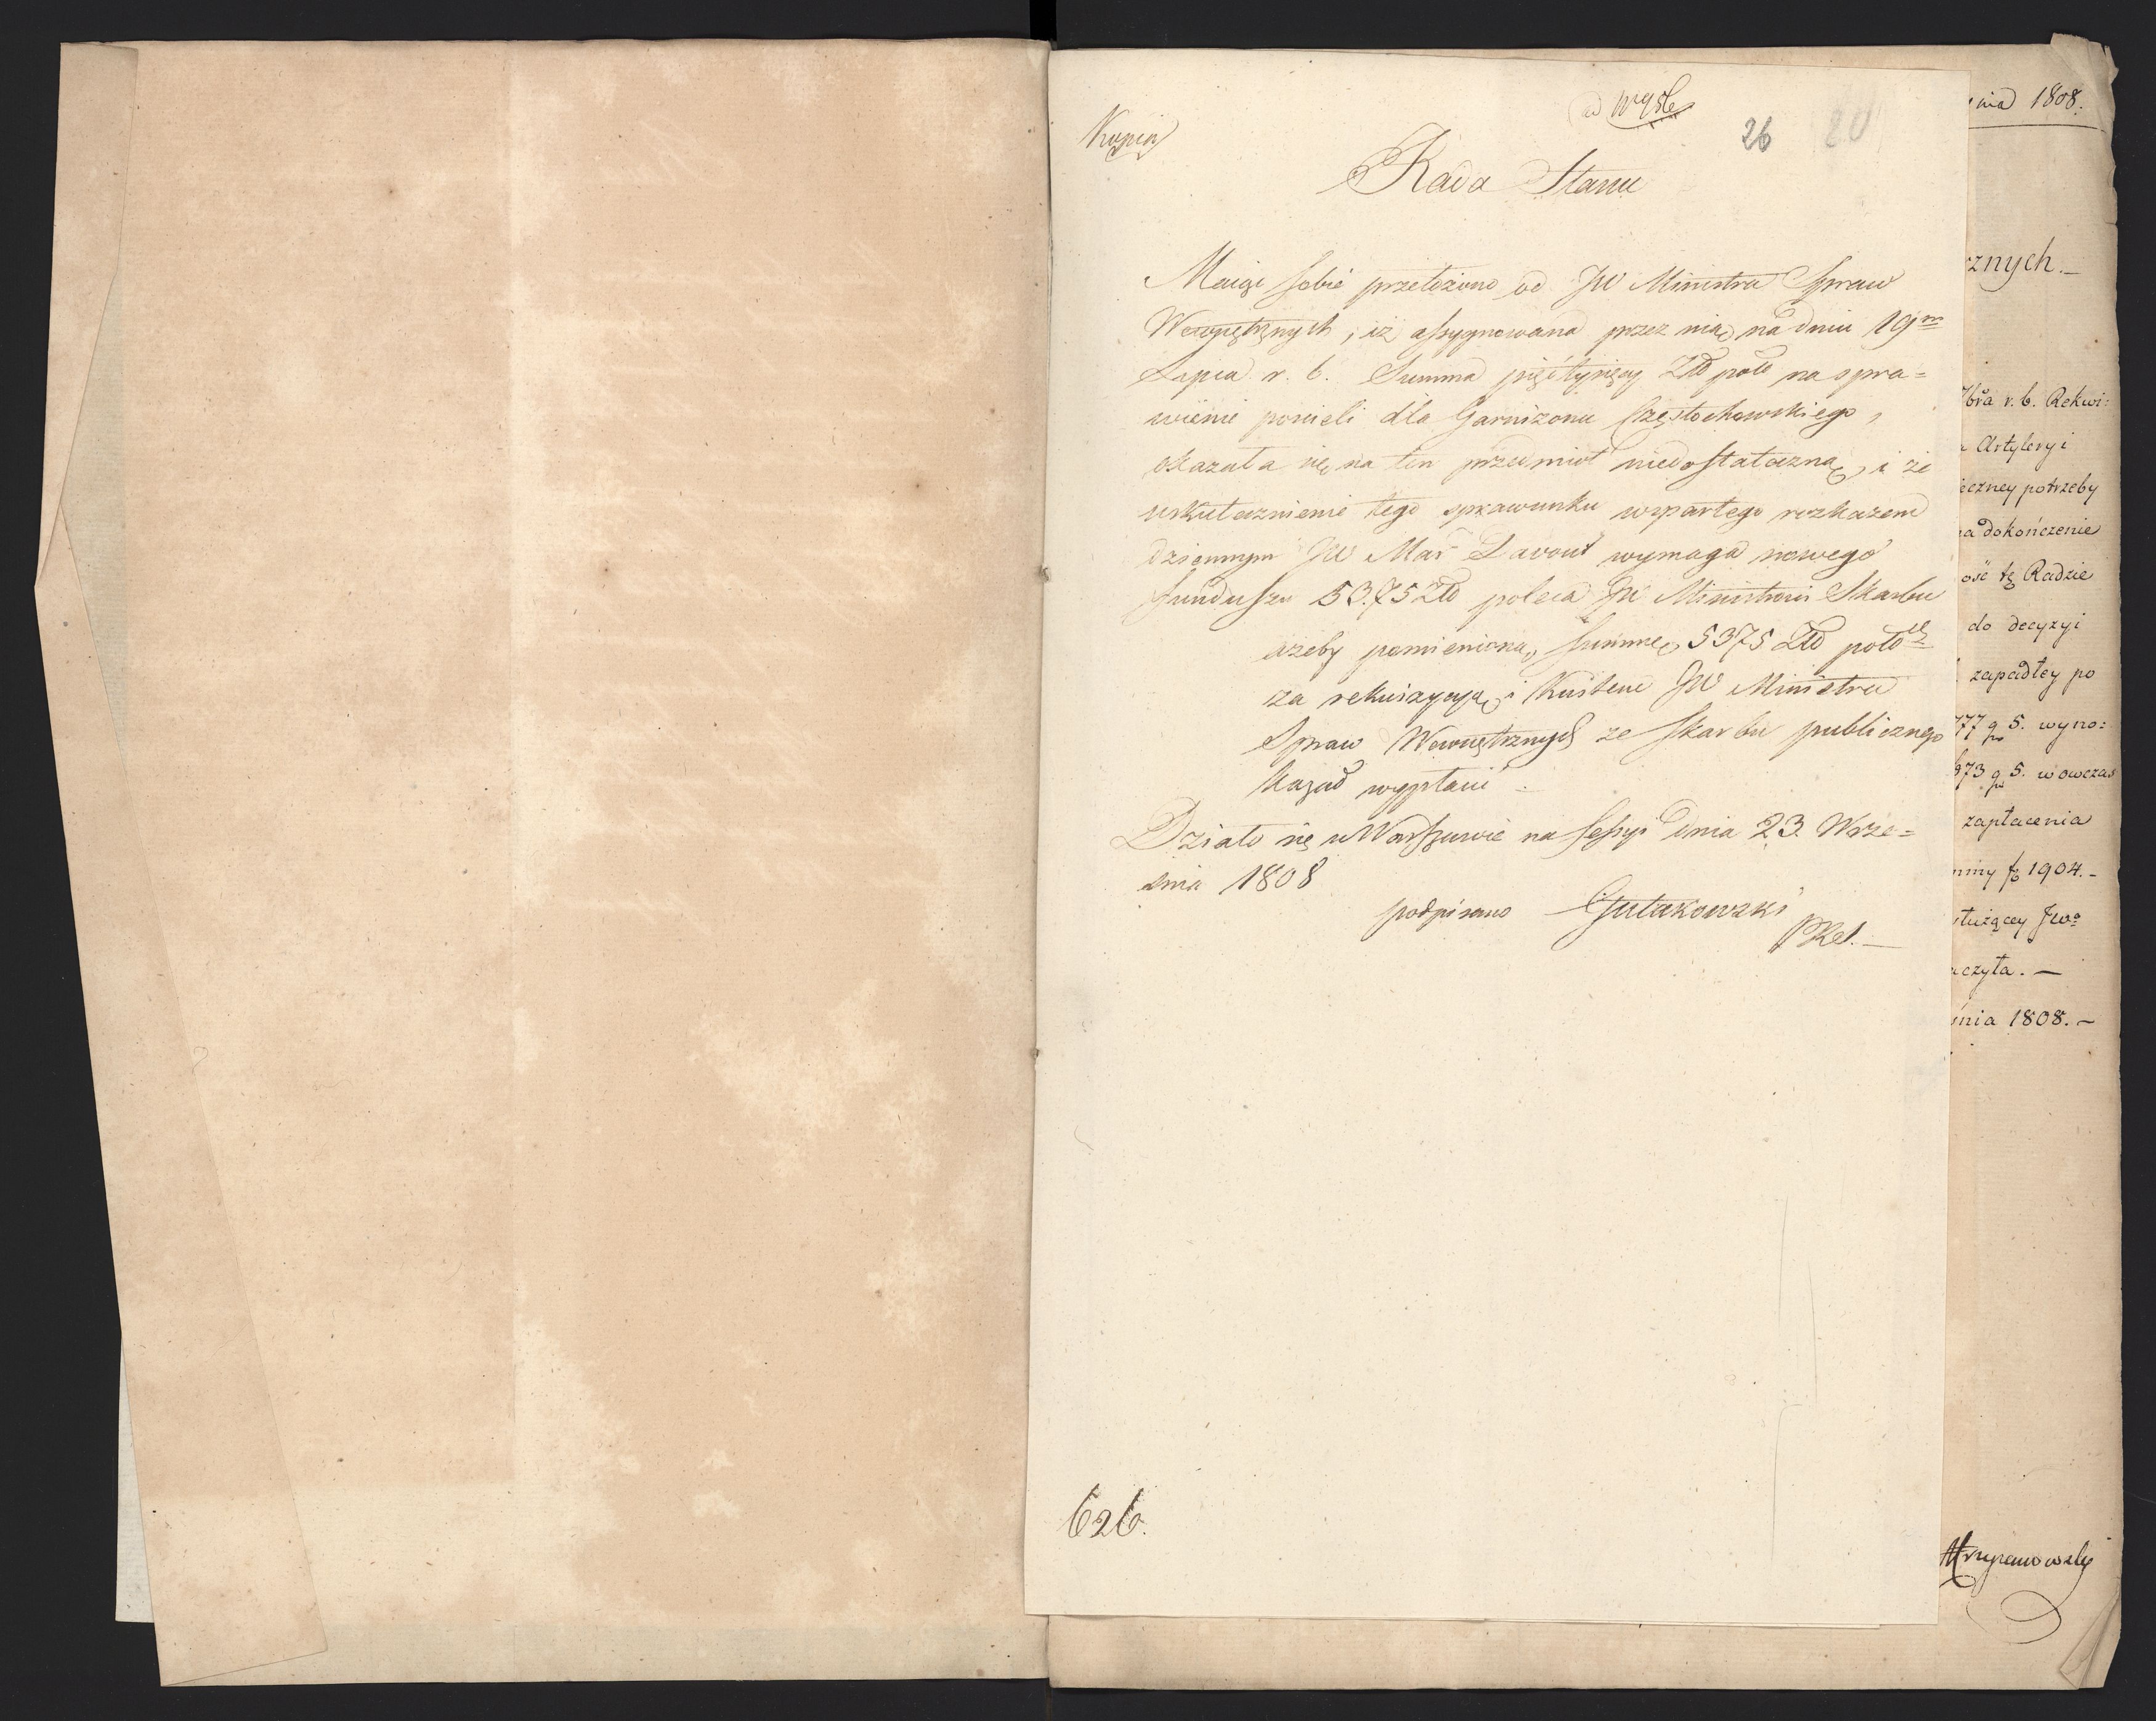 Kopia
26 20
Rada Stanu
Maiąc sobie przełożono od JW Ministra Spraw
Wewnętrznych, iż assygnowana przez nią na dniu 19m
Lipca r. b. Summa pięć tysięcy Złł pols na spra=
wienie poscieli dla Garnizonu Częstochowskiego,
okazała się na ten przedmiot niedostateczną, i że
uskutecznienie tego sprawunku wspartego rozkazem
dziennym JW Mar Davout wymaga nowego
funduszu 53.75 Złł poleca JW Ministrowi Skarbu
ażeby pomienioną Summę 5375 Złł pols
za rekwizycyą i Kwitem JW Ministra
Spraw Wewnętrznych ze Skarbu publicznego
kazał wypłacić.
Działo się w Warszawie na Sessyi dnia 23. Wrze=
snia 1808
podpisano Gutakowski
PRes.
626.
nia 1808.
znych.
7bra r. b. Rekwi:
Artyleryi
eczney potrzeby
a dokończenie
ość tę Radzie
do decyzyi
zapadłey po
777 g 5. wyno:
973 g 5. wowczas
zapłacenia
1904.
służącey
czyła.
nia 1808.